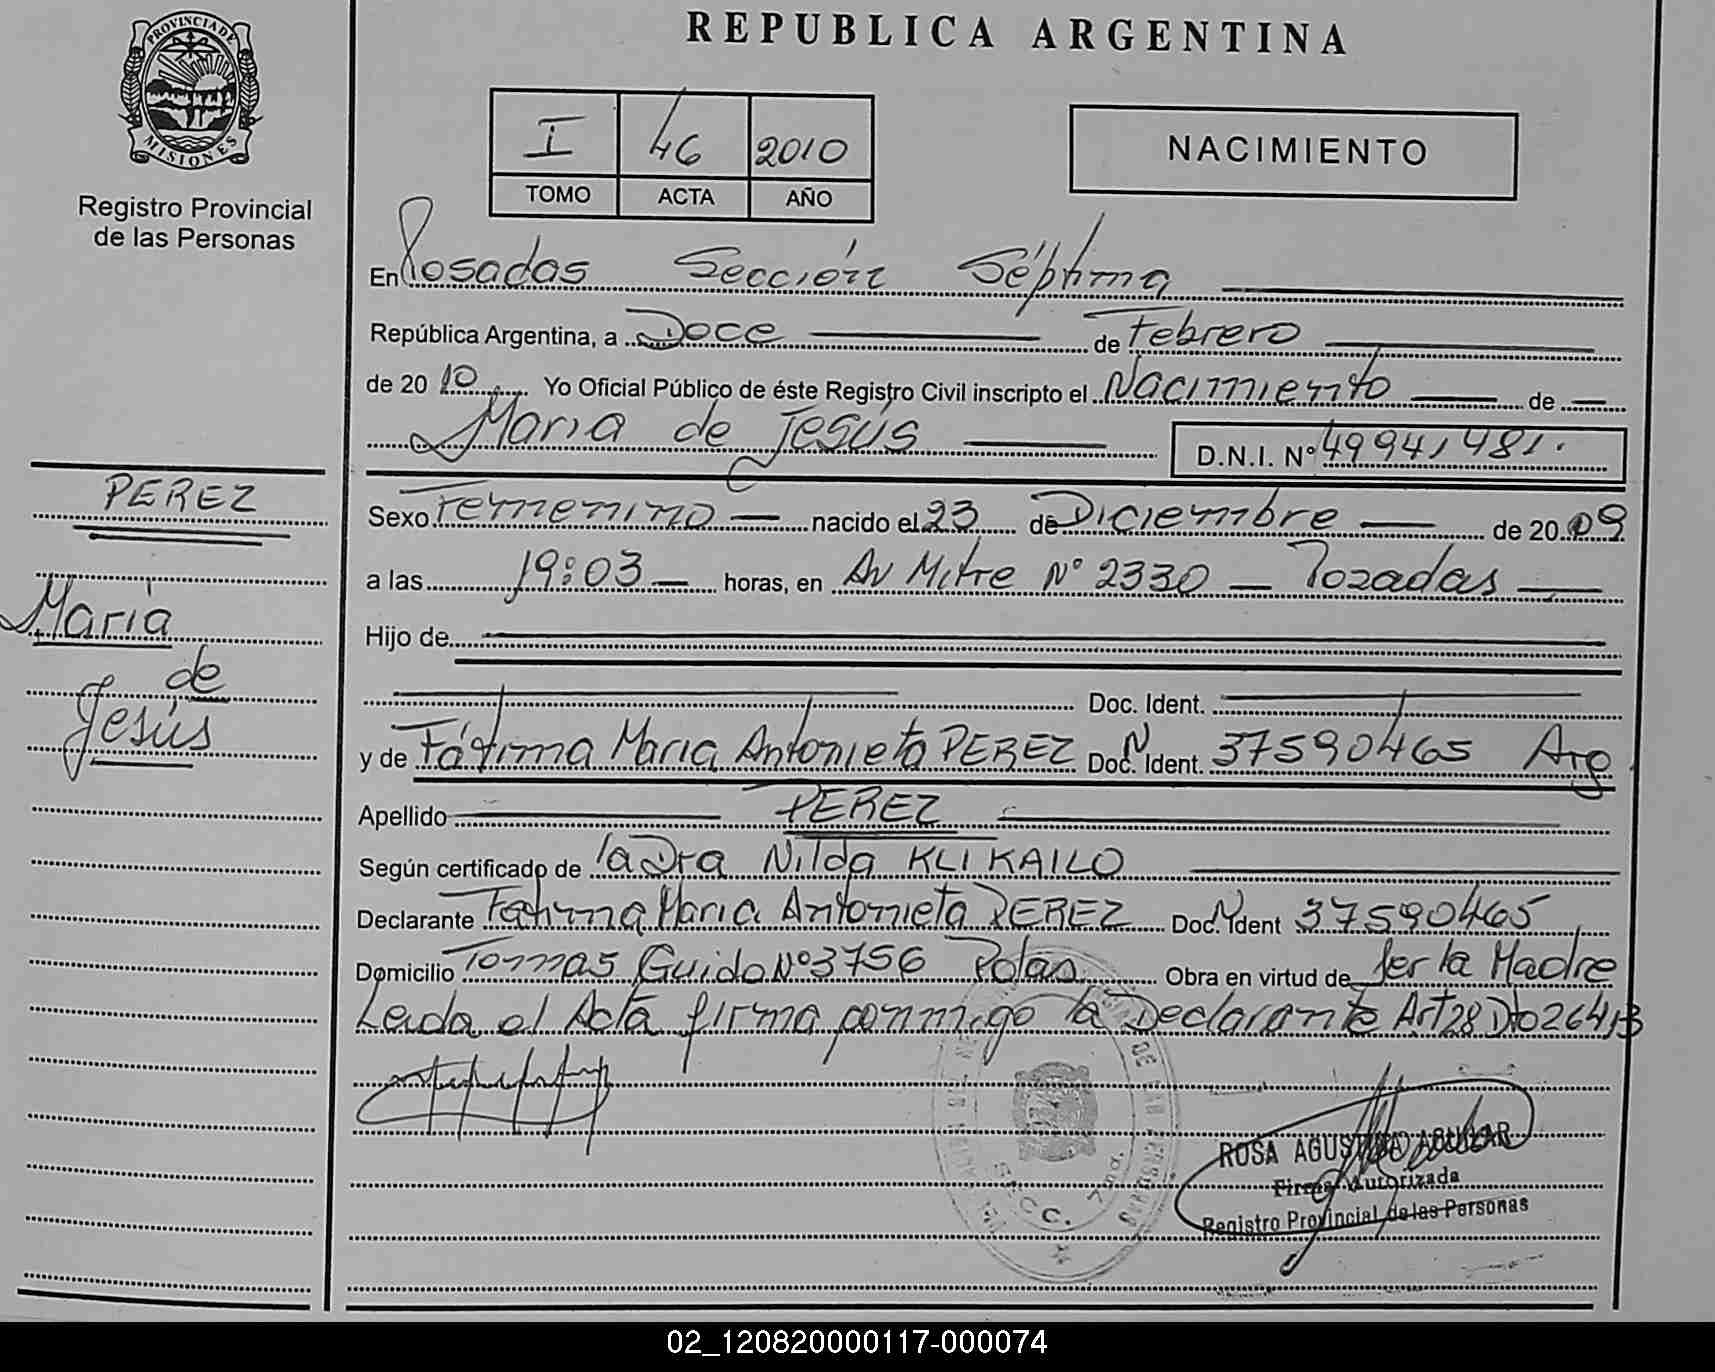 REPUBLICA ARGENTINA
PROVINCIA DE
MISIONES
Registro Provincial
de las Personas
I 46 2010
TOMO ACTA AÑO
NACIMIENTO
En Posadas Sección Séptima
República Argentina, a Doce de Febrero
de 20 10 Yo Oficial Público de éste Registro Civil inscripto el Nacimiento de
María de Jesús D.N.I. N° 49941481.
PEREZ
María
de
Jesús
Sexo Femenino nacido el 23 de Diciembre de 20 09
a las 19:03 horas, en Av Mitre N° 2330 Posadas
Hijo de
Doc. Ident.
y de Fátima Maria Antonieta PEREZ Doc. N Ident. 37590465 Arg
Apellido PEREZ
Según certificado de la Dra Nilda KLIKAILO
Declarante Fatima Maria Antonieta PEREZ Doc. N Ident 37590465
Domicilio Tomas Guido N° 3756 Pdas Obra en virtud de ser la Madre
Leida el Acta firma conmigo la Declarante Art 28 Dto
SECC. 7ma.
ROSA
Firma Autorizada
Registro Provincial de las Personas
02_120820000117-000074